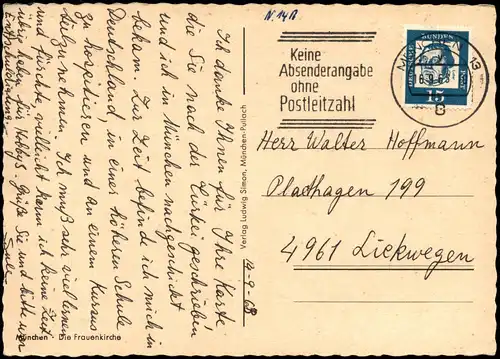 N. 14 B
Keine
Absenderangabe
ohne
Postleitzahl
DEUTSCHE BUNDESPOST
15
13
B
Herr Walter Hoffmann
Pladhagen 199
4961 Liekwegen
Ich danke Ihnen für Ihre Karte
die Sie nach der Türkei geschrieben
und ich in München nachgeschickt
bekam. Zur Zeit befinde ich mich in
Deutschland, in einer höheren Schule
zu hospitieren und an einem Kursus
teilzunehmen. Ich muß sehr viel lernen
und fürchte vielleicht kann ich keine Zeit
übrig haben für Hobbys. Grüße Sie und bitte um
Entschuldigung.
14-9-68
Verlag Ludwig Simon, München-Pullach
München - Die Frauenkirche